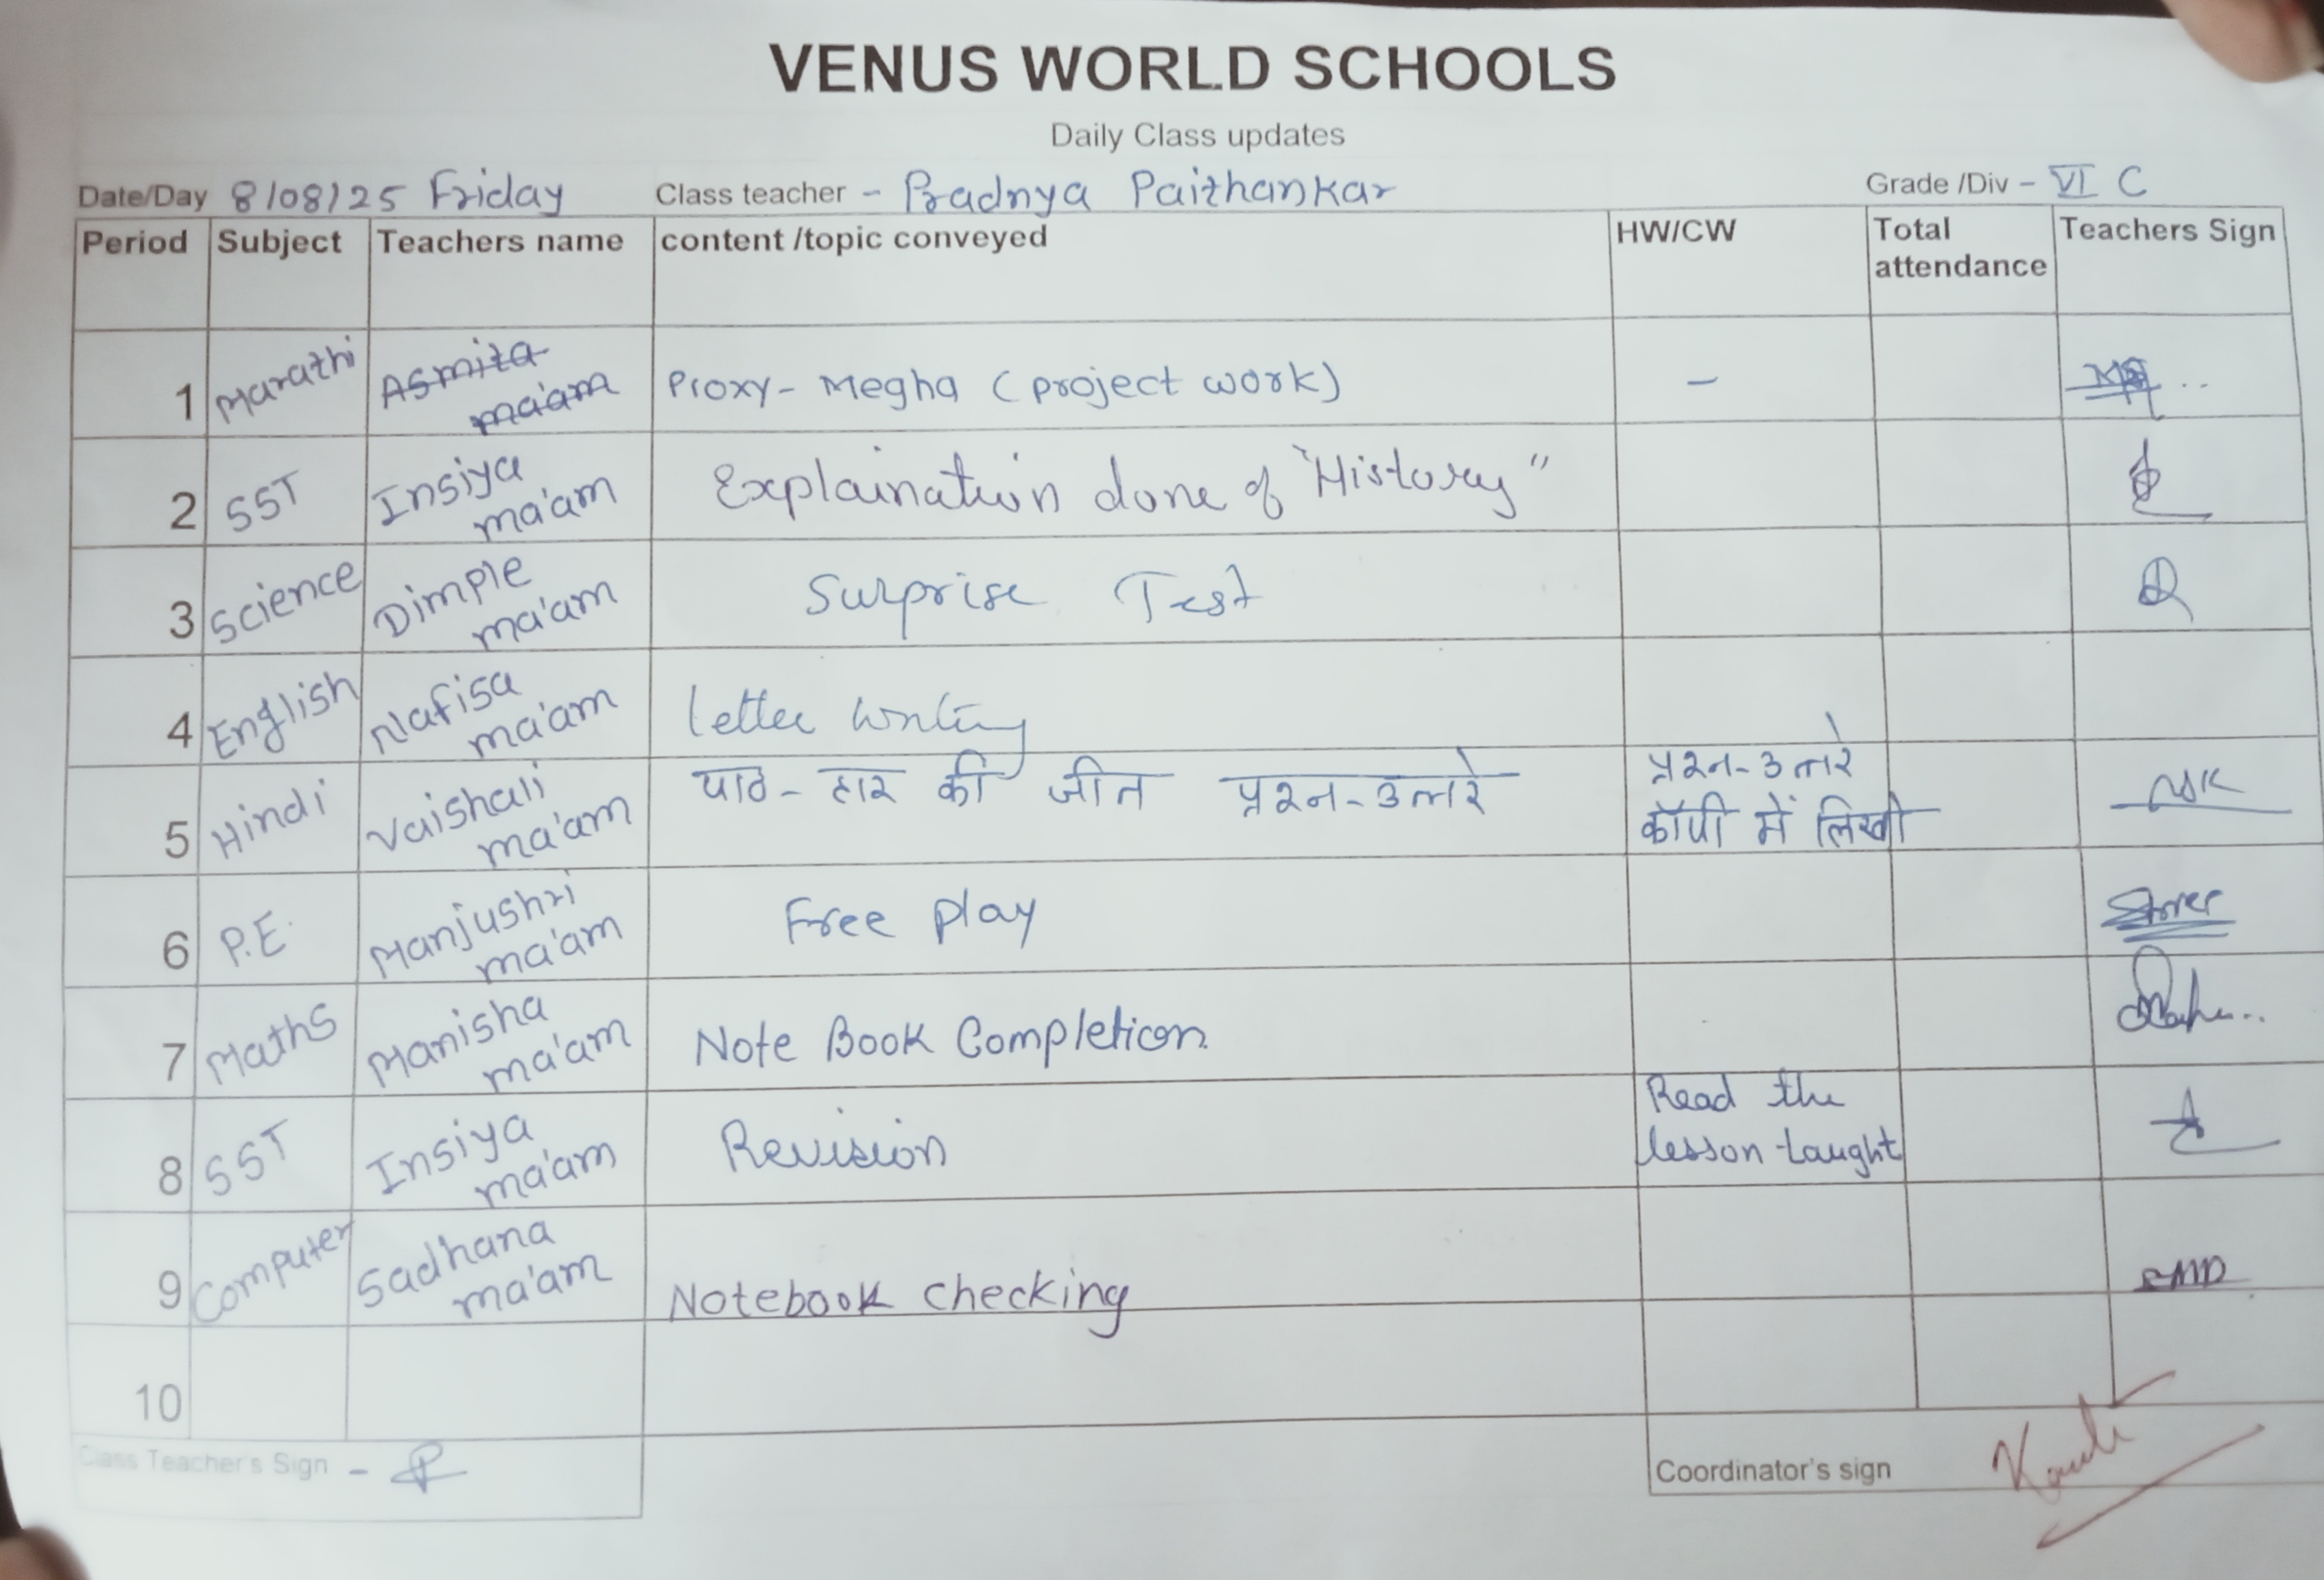 VENUS WORLD SCHOOLS
Daily Class updates
Date/Day 8/08/25 Friday Class teacher - Pradnya Paithankar Grade /Div - VI C
Period Subject Teachers name content /topic conveyed HW/CW Total attendance Teachers Sign
1 Marathi Asmita ma'am Proxy- Megha (project work) -
2 SST Insiya ma'am Explaination done of "History"
3 Science Dimple ma'am Surprise Test
4 English Nafisa ma'am Letter Writing
5 Hindi Vaishali ma'am पाठ - हार की जीत प्रश्न-उत्तरे प्रश्न-उत्तरे कॉपी में लिखी
6 P.E. Manjushri ma'am Free play
7 Maths Manisha ma'am Note Book Completion
8 SST Insiya ma'am Revision Read the lesson taught
9 Computer Sadhana ma'am Notebook checking
10
Class Teacher's Sign -
Coordinator's sign